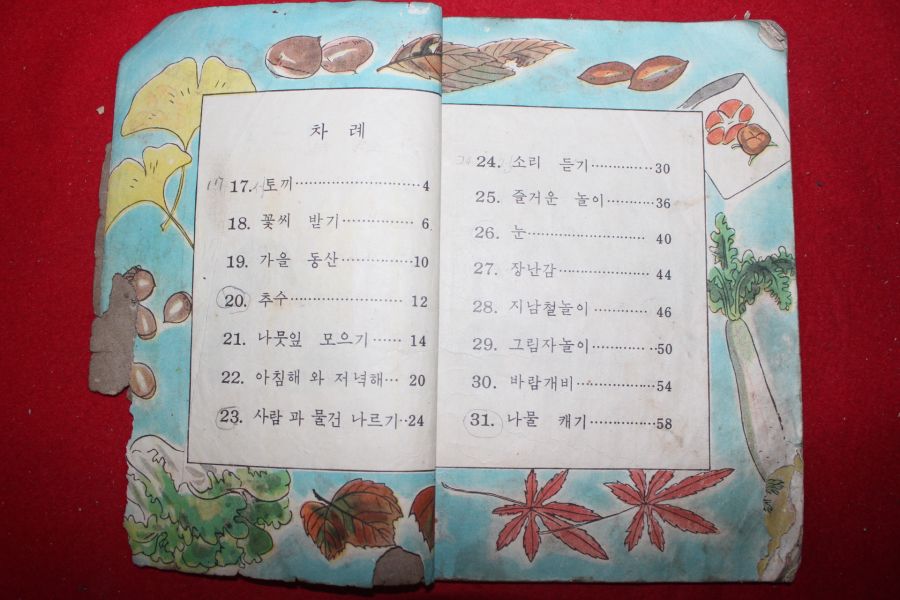 차 례
17. 토끼 4
18. 꽃씨 받기 6
19. 가을 동산 10
20. 추수 12
21. 나뭇잎 모으기 14
22. 아침해 와 저녁해 20
23. 사람 과 물건 나르기 24
24. 소리 듣기 30
25. 즐거운 놀이 36
26. 눈 40
27. 장난감 44
28. 지남철놀이 46
29. 그림자놀이 50
30. 바람개비 54
31. 나물 캐기 58